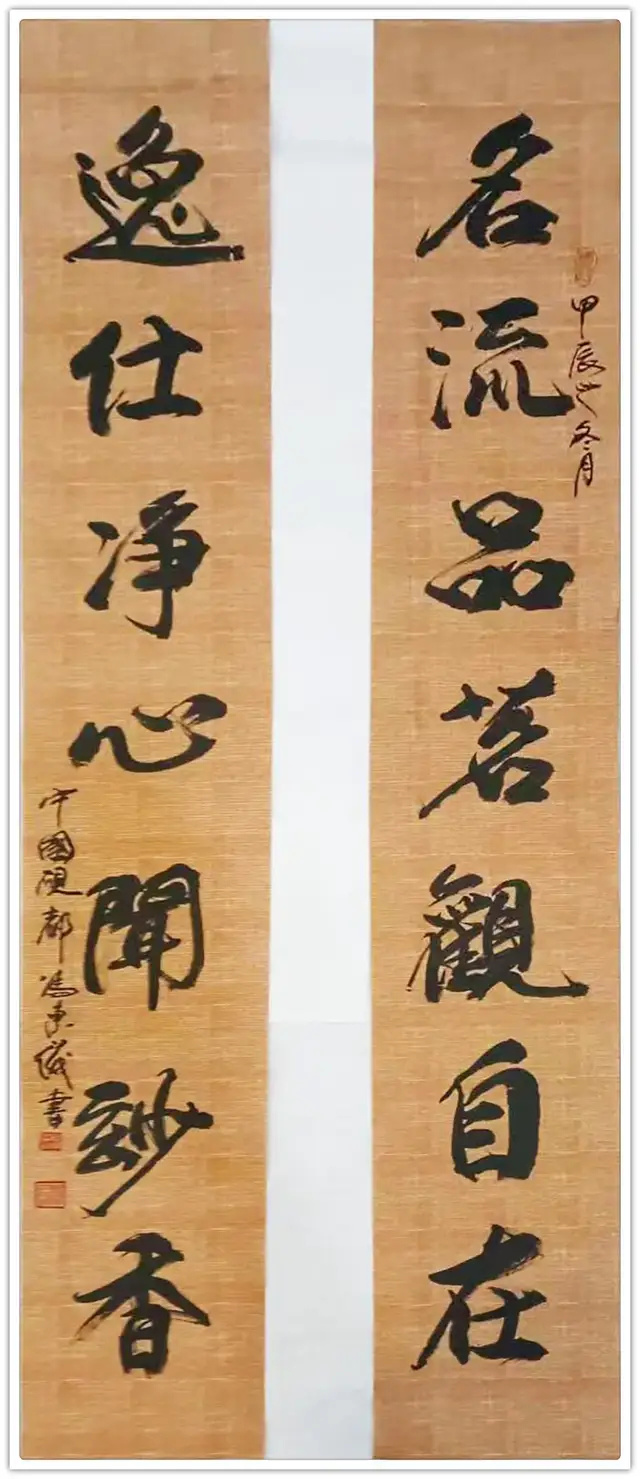 甲辰之冬月
名流品茗觀自在
逸仕凈心聞玅香
中國硯都馮東書